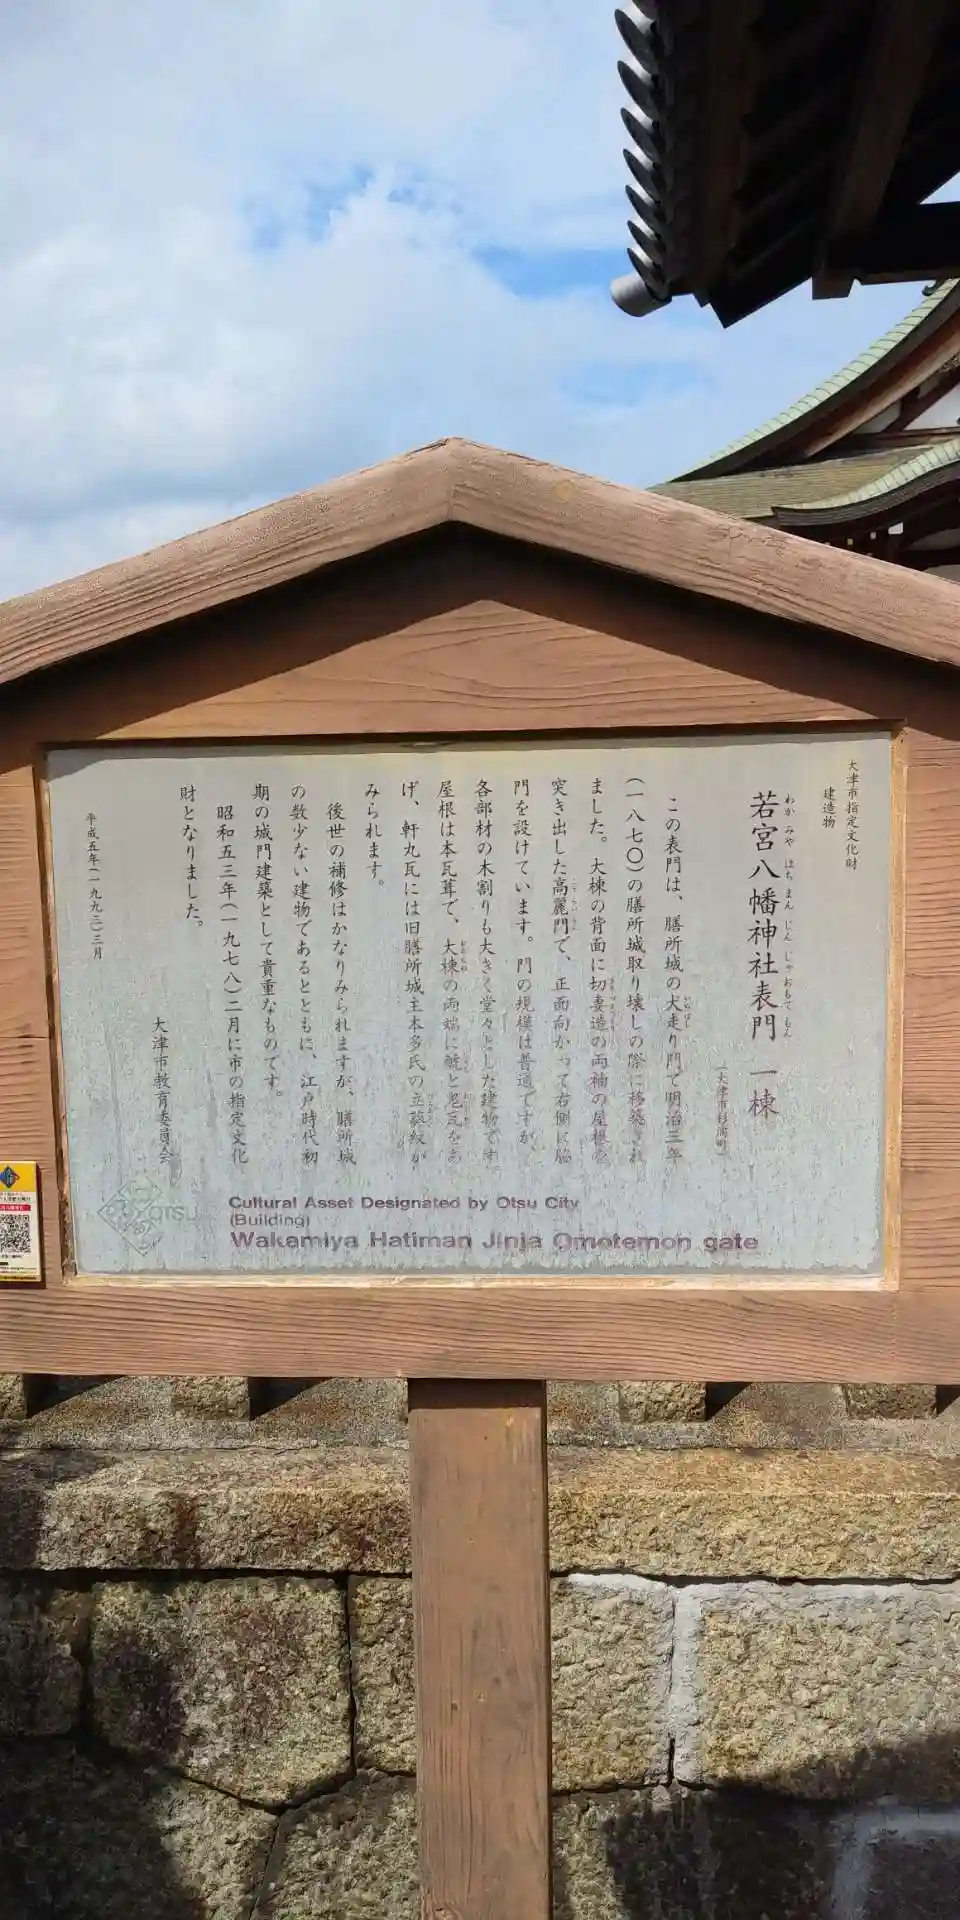 大津市指定文化財
建造物
若宮八幡神社表門 一棟
わか みや はち まん じん じゃ おもて もん
(大津市杉浦町)
この表門は、膳所城の犬走り門で明治三年
(一八七〇)の膳所城取り壊しの際に移築され
ました。大棟の背面に切妻造の両袖の屋根を
突き出した高麗門で、正面向かって右側に脇
門を設けています。門の規模は普通ですが、
各部材の木割りも大きく堂々とした建物です。
屋根は本瓦葺で、大棟の両端に鯱と鬼瓦をあ
げ、軒丸瓦には旧膳所城主本多氏の立葵紋が
みられます。
後世の補修はかなりみられますが、膳所城
の数少ない建物であるとともに、江戸時代初
期の城門建築として貴重なものです。
昭和五三年(一九七八)二月に市の指定文化
財となりました。
大津市教育委員会
平成五年(一九九三)三月
OTSU
Cultural Asset Designated by Otsu City
(Building)
Wakamiya Hatiman Jinja Omotemon gate